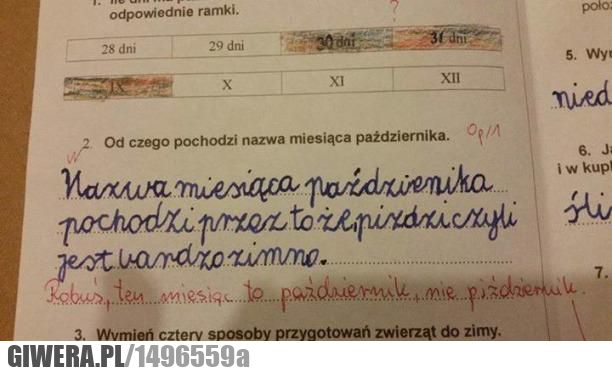 odpowiednie ramki.
?
28 dni 29 dni 30 dni 31 dni
IX X XI XII
2. Od czego pochodzi nazwa miesiąca października. 0p/1
Nazwa miesiąca paździenika
pochodzi przez to że, piździ czyli
jest bardzo zimno.
Robuś, ten miesiąc to październik, nie piździernik.
3. Wymień cztery sposoby przygotowań zwierząt do zimy.
5.
nied
6.
i w kup
śli
7.
GIWERA.PL/1496559a